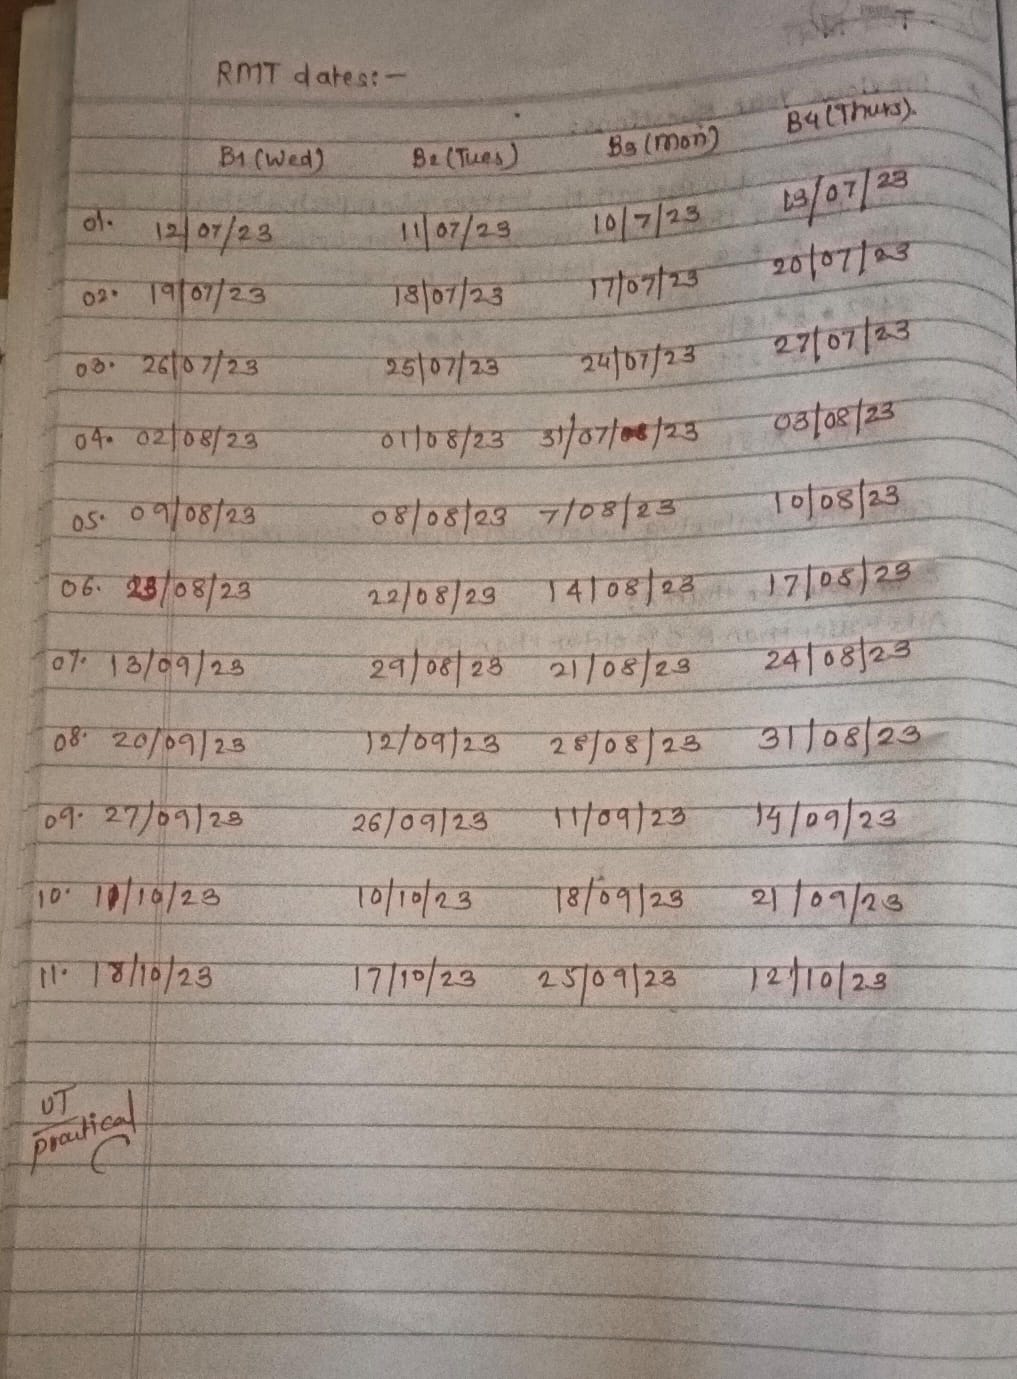 RMT dates:-
B1 (Wed) B2 (Tues) B3 (Mon) B4 (Thurs).
01. 12/07/23 11/07/23 10/7/23 13/07/23
02. 19/07/23 18/07/23 17/07/23 20/07/23
03. 26/07/23 25/07/23 24/07/23 27/07/23
04. 02/08/23 01/08/23 31/07/08/23 03/08/23
05. 09/08/23 08/08/23 7/08/23 10/08/23
06. 23/08/23 22/08/23 14/08/23 17/08/23
07. 13/09/23 29/08/23 21/08/23 24/08/23
08. 20/09/23 12/09/23 28/08/23 31/08/23
09. 27/09/23 26/09/23 11/09/23 14/09/23
10. 11/10/23 10/10/23 18/09/23 21/09/23
11. 18/10/23 17/10/23 25/09/23 12/10/23
UT
practical